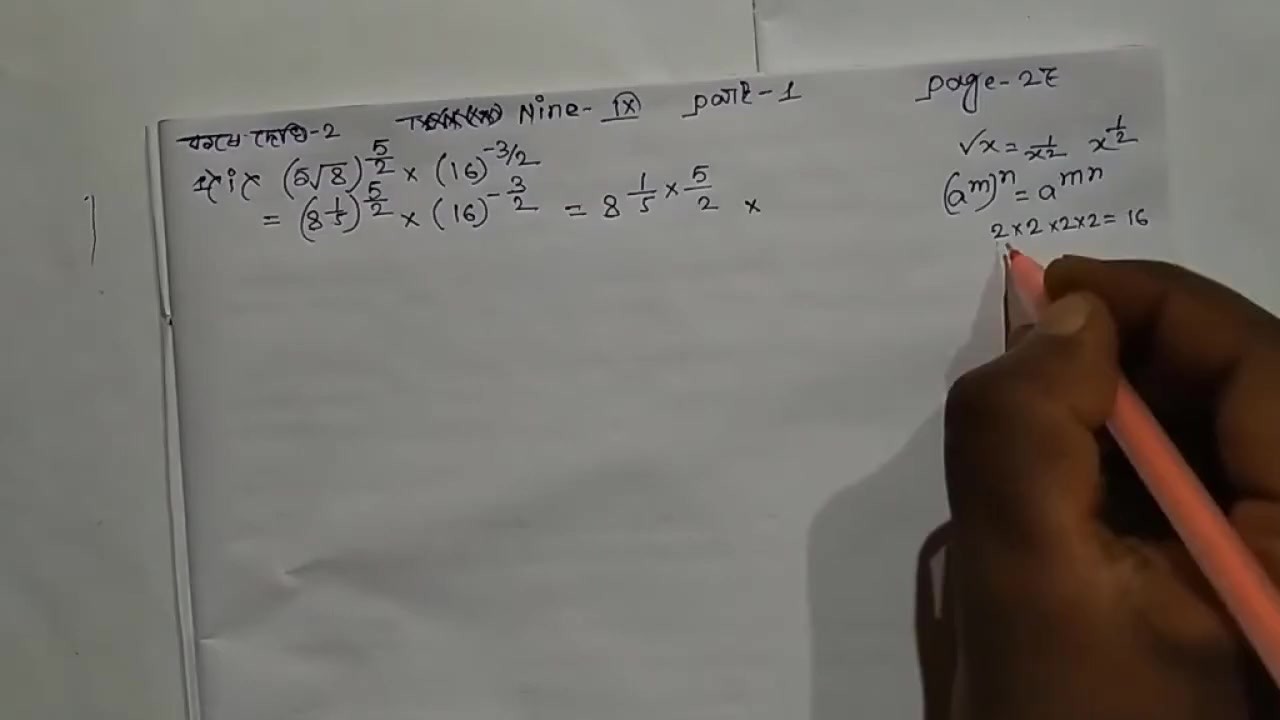 কষে দেখি-2 Nine-IX part-1 Page-2८
(5√8)^5/2 × (16)^-3/2
= (8^1/5)^5/2 × (16)^-3/2 = 8^1/5 × 5/2 ×
√x = 1/x2 x^1/2
(a^m)^n = a^mn
2×2×2×2 = 16